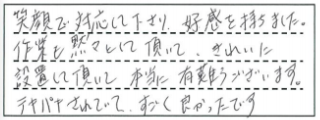 笑顔で対応して下さり、好感を持ちました。
作業も黙々として頂いて、きれいに
設置して頂いて本当に有難うございます。
テキパキされていて、すごく良かったです